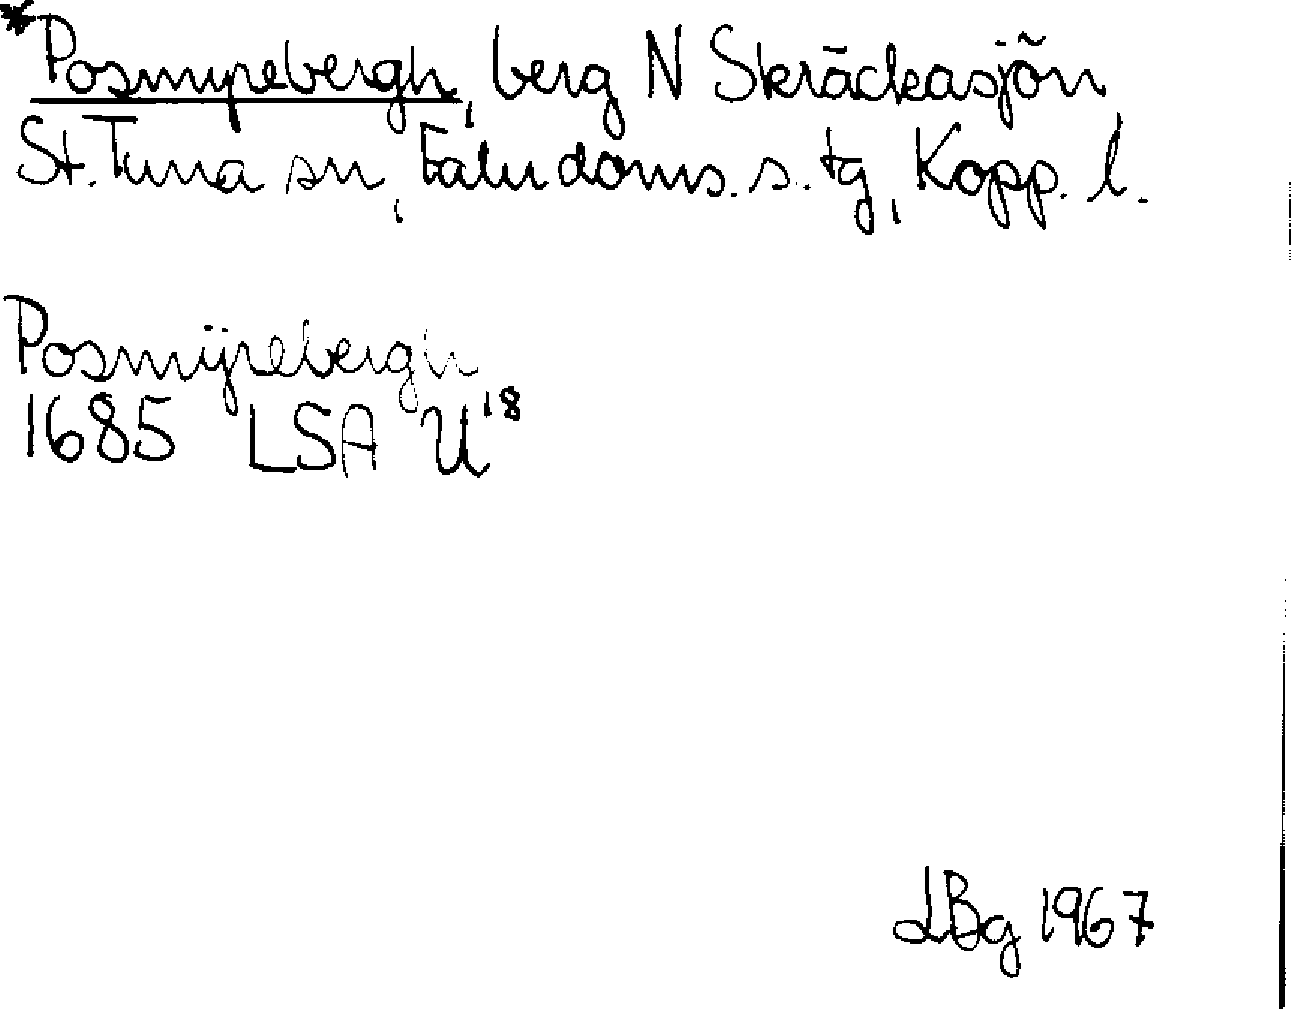 *Posmyrebergh, berg N Skräckasjön
St. Tuna sn, Falu doms. s. tg, Kopp. l.
Posmÿrebergh
1685 LSA U¹⁸
LBg 1967